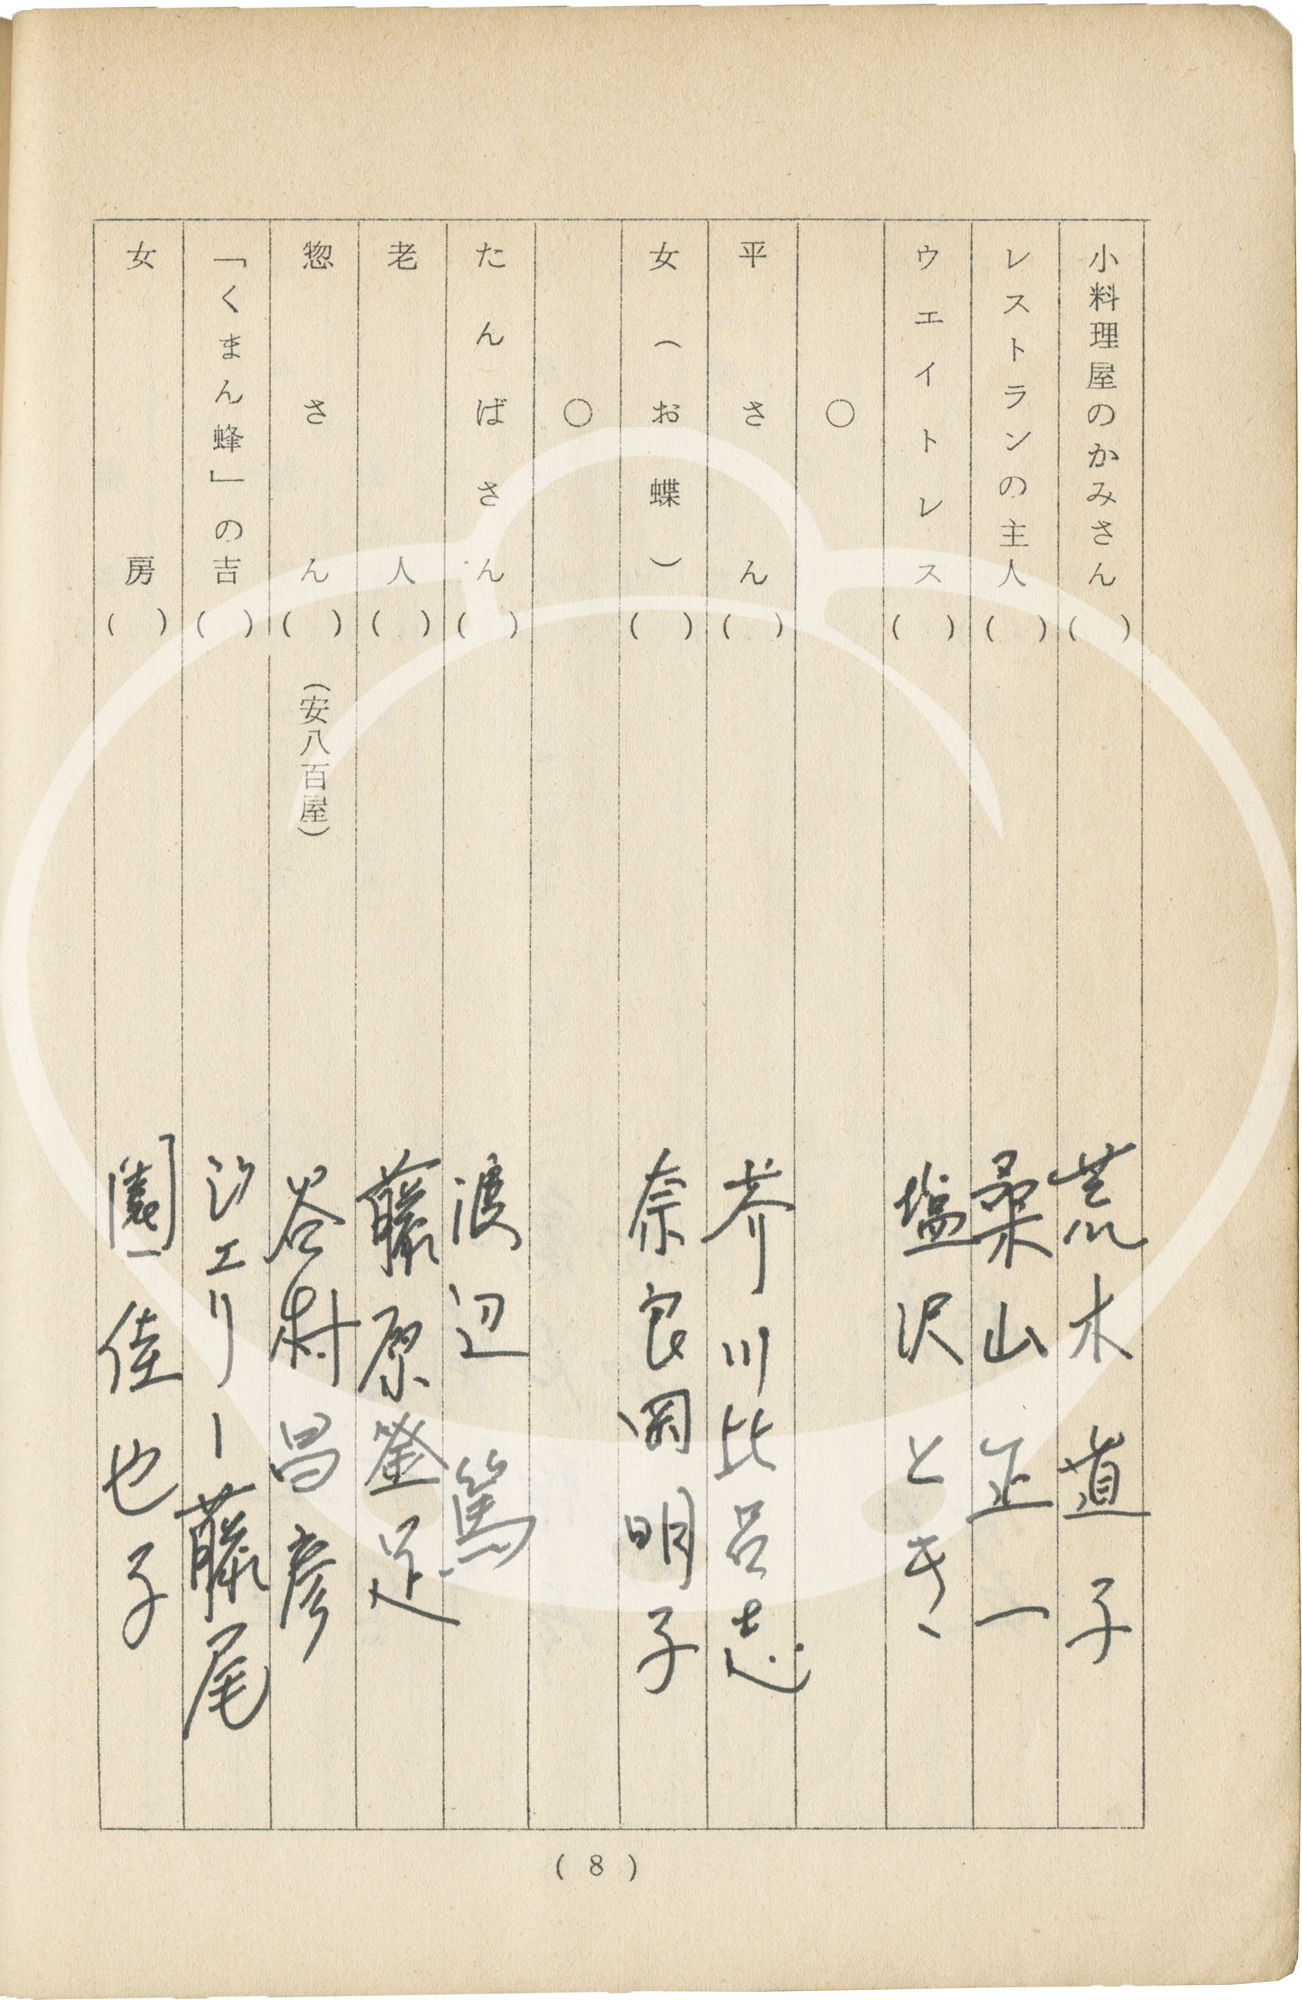 小料理屋のかみさん( ) 荒木道子
レストランの主人( ) 桑山正一
ウエイトレス( ) 塩沢とき
○
平さん( ) 芥川比呂志
女(お蝶) ( ) 奈良岡明子
○
たんばさん( ) 渡辺篤
老人( ) 藤原釜足
惣さん( ) (安八百屋) 谷村昌彦
「くまん蜂」の吉( ) ジェリー藤尾
女房( ) 園佳也子
( 8 )